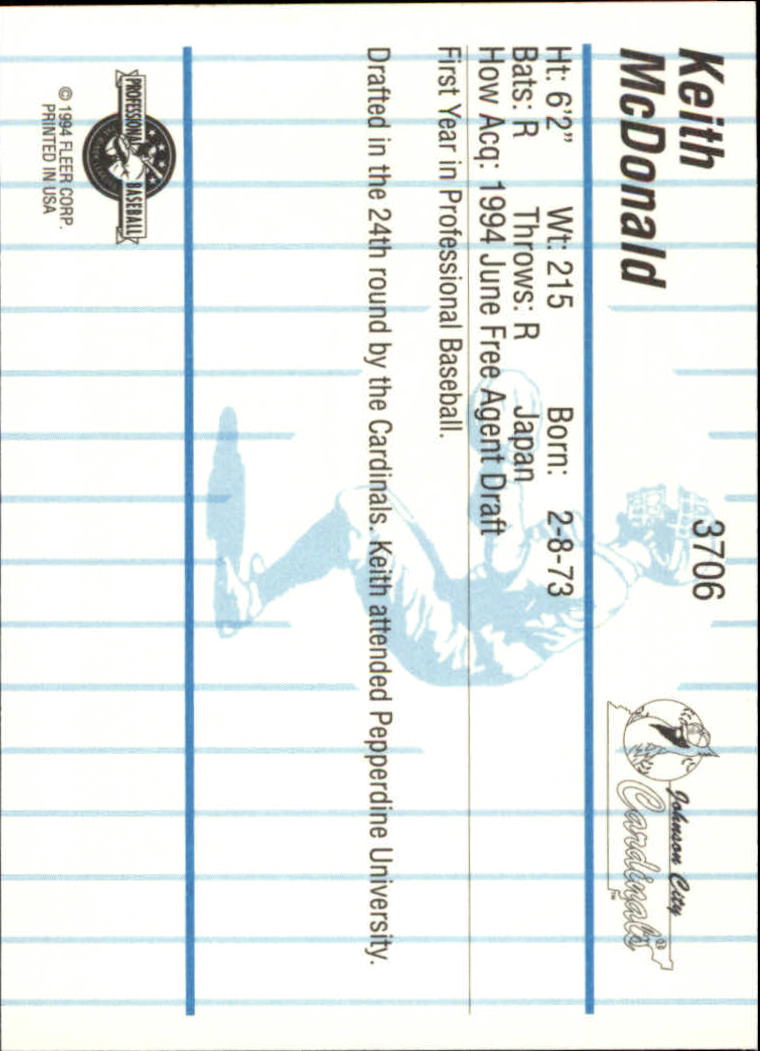 Keith
McDonald
3706
Johnson City
Cardinals®
™
Ht: 6'2" Wt: 215 Born: 2-8-73
Bats: R Throws: R Japan
How Acq: 1994 June Free Agent Draft
First Year in Professional Baseball.
Drafted in the 24th round by the Cardinals. Keith attended Pepperdine University.
PROFESSIONAL BASEBALL
© 1994 FLEER CORP.
PRINTED IN USA